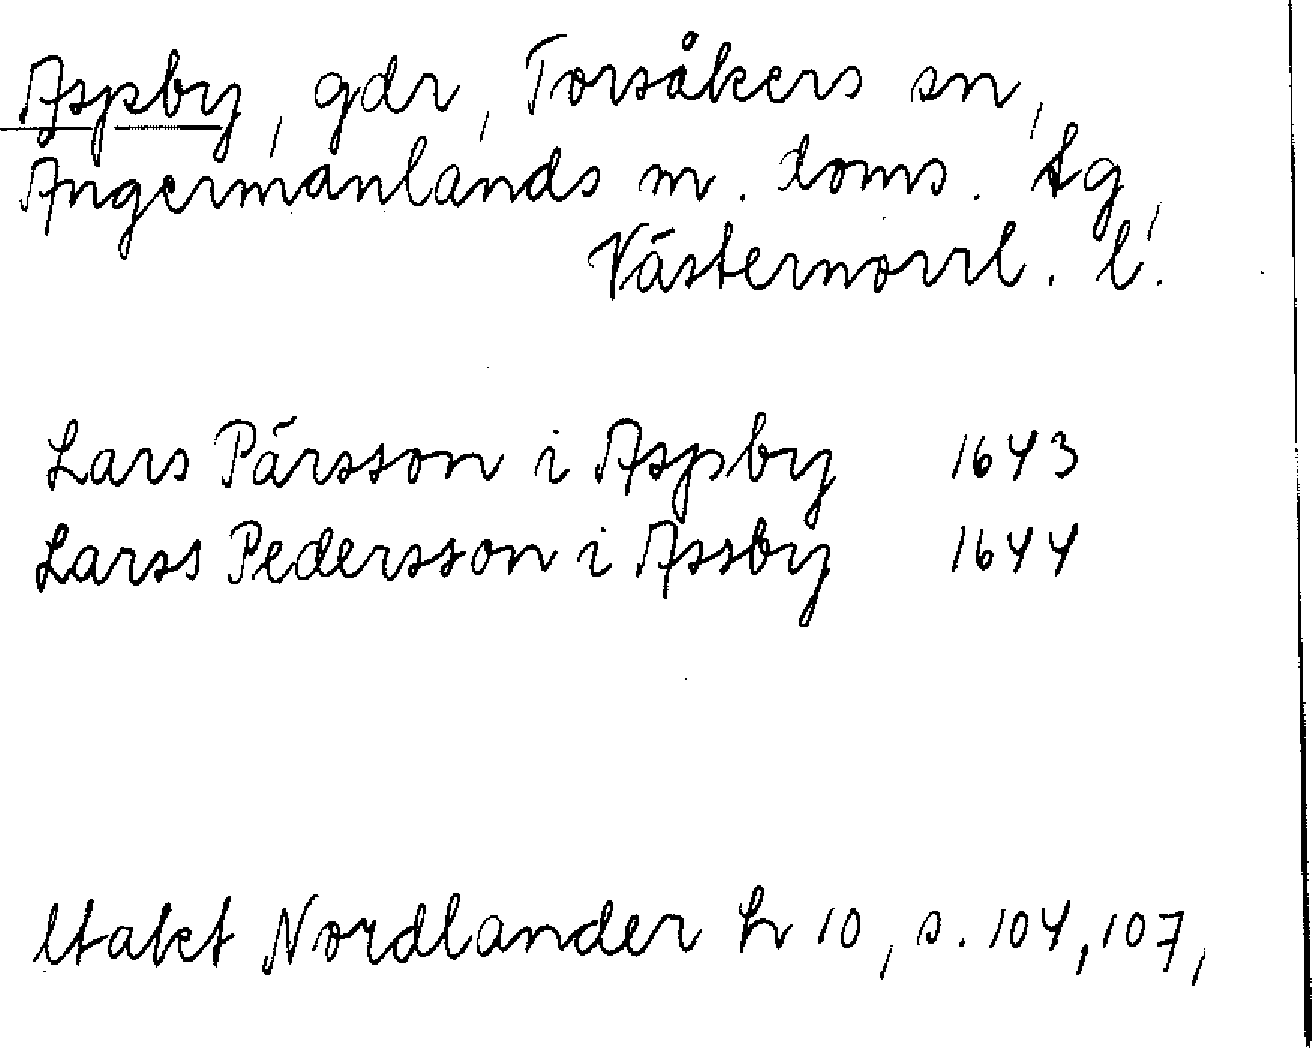 Aspby, gdr, Torsåkers sn,
Ångermanlands m. doms. tg,
Västernorrl. l.
Lars Pärsson i Aspby 1643
Larss Pedersson i Assby 1644
Utakt Nordlander h 10, s. 104, 107,